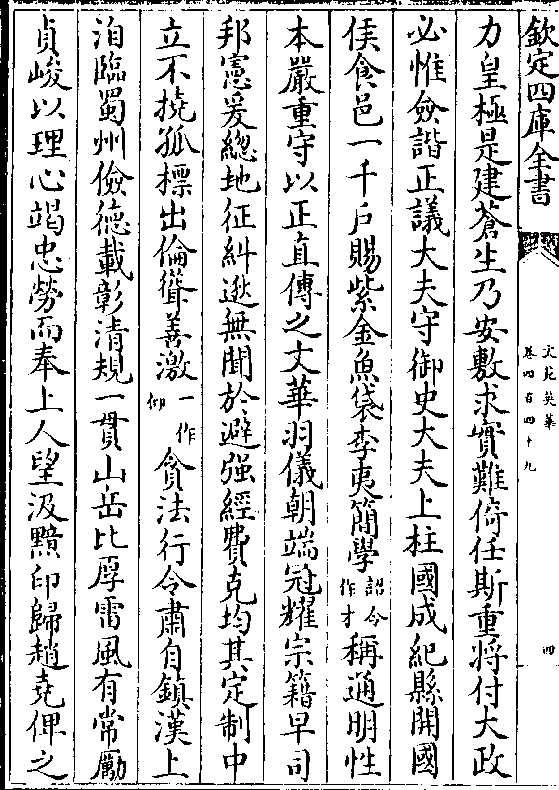 欽定四庫全書
文苑英華
卷四百四十九
四
力皇極是建蒼生乃安敷求實難倚任斯重將付大政
必惟僉諧正議大夫守御史大夫上柱國成紀縣開國
侯食邑一千戶賜紫金魚袋李夷簡學詔令作才稱通明性
本嚴重守以正直傳之文華羽儀朝端冠耀宗籍早司
邦憲爰總地征糾逖無聞於避强經費克均其定制中
立不撓孤標出倫聳善激一作仰貪法行令肅自鎮漢上
洎臨蜀州儉德載彰清規一貫山岳比厚雷風有常勵
貞峻以理心竭忠勞而奉上人望汲黯印歸趙堯俾之